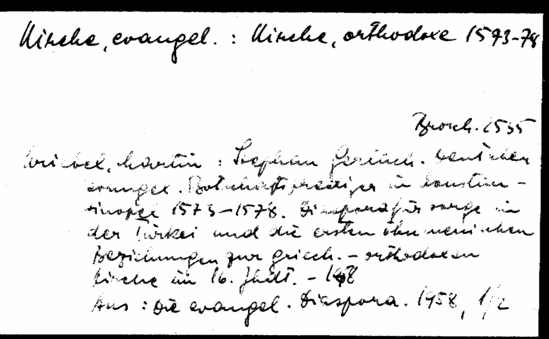 Kirche, evangel. : Kirche, orthodoxe 1573-78
Brosch. 1535
Kriebel, Martin : Stephan Gerlach. Deutscher
evangel. Botschaftsprediger in Konstan-
tinopel 1573-1578. Diasporafürsorge in
der Türkei und die ersten ökumenischen
Beziehungen zur griech.-orthodoxen
Kirche im 16. Jhdt. -
Aus : Die evangel. Diaspora. 1958, 1/2